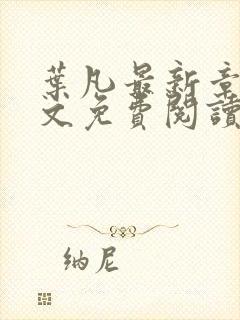 葉凡最新章
文免費閱讀
纳尼